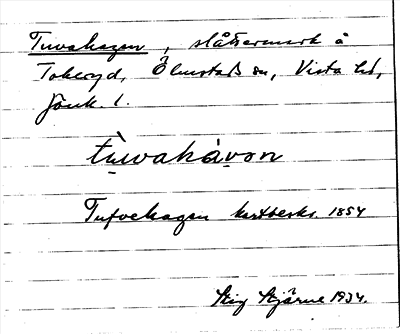 Tuvahagen, slåttermark å
Tokeryd, Ölmstad sn, Vista hd,
Jönk. l.
tùwahàvon
Tufvehagen kartbeskr. 1854
Stig Stjärne 1934.